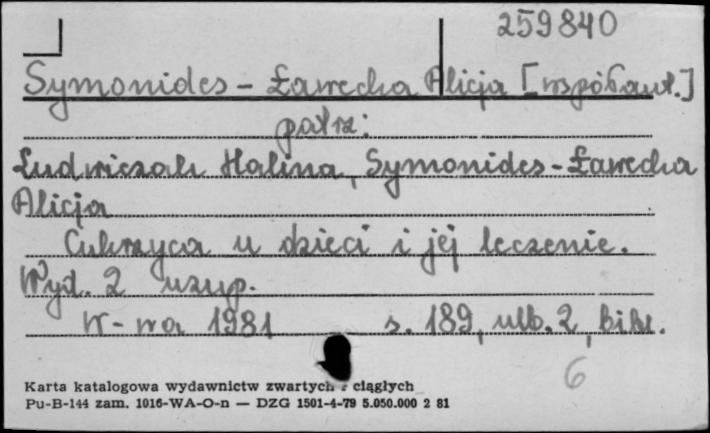 259840
Symonides - Ławecka Alicja [współaut.]
patrz:
Ludwiczak Halina, Symonides - Ławecka
Alicja
Cukrzyca u dzieci i jej leczenie.
Wyd. 2 uzup.
W-wa 1981 s. 189, nlb. 2, bibl.
6
Karta katalogowa wydawnictw zwartych i ciągłych
Pu-B-144 zam. 1016-WA-O-n — DZG 1501-4-79 5.050.000 2 81